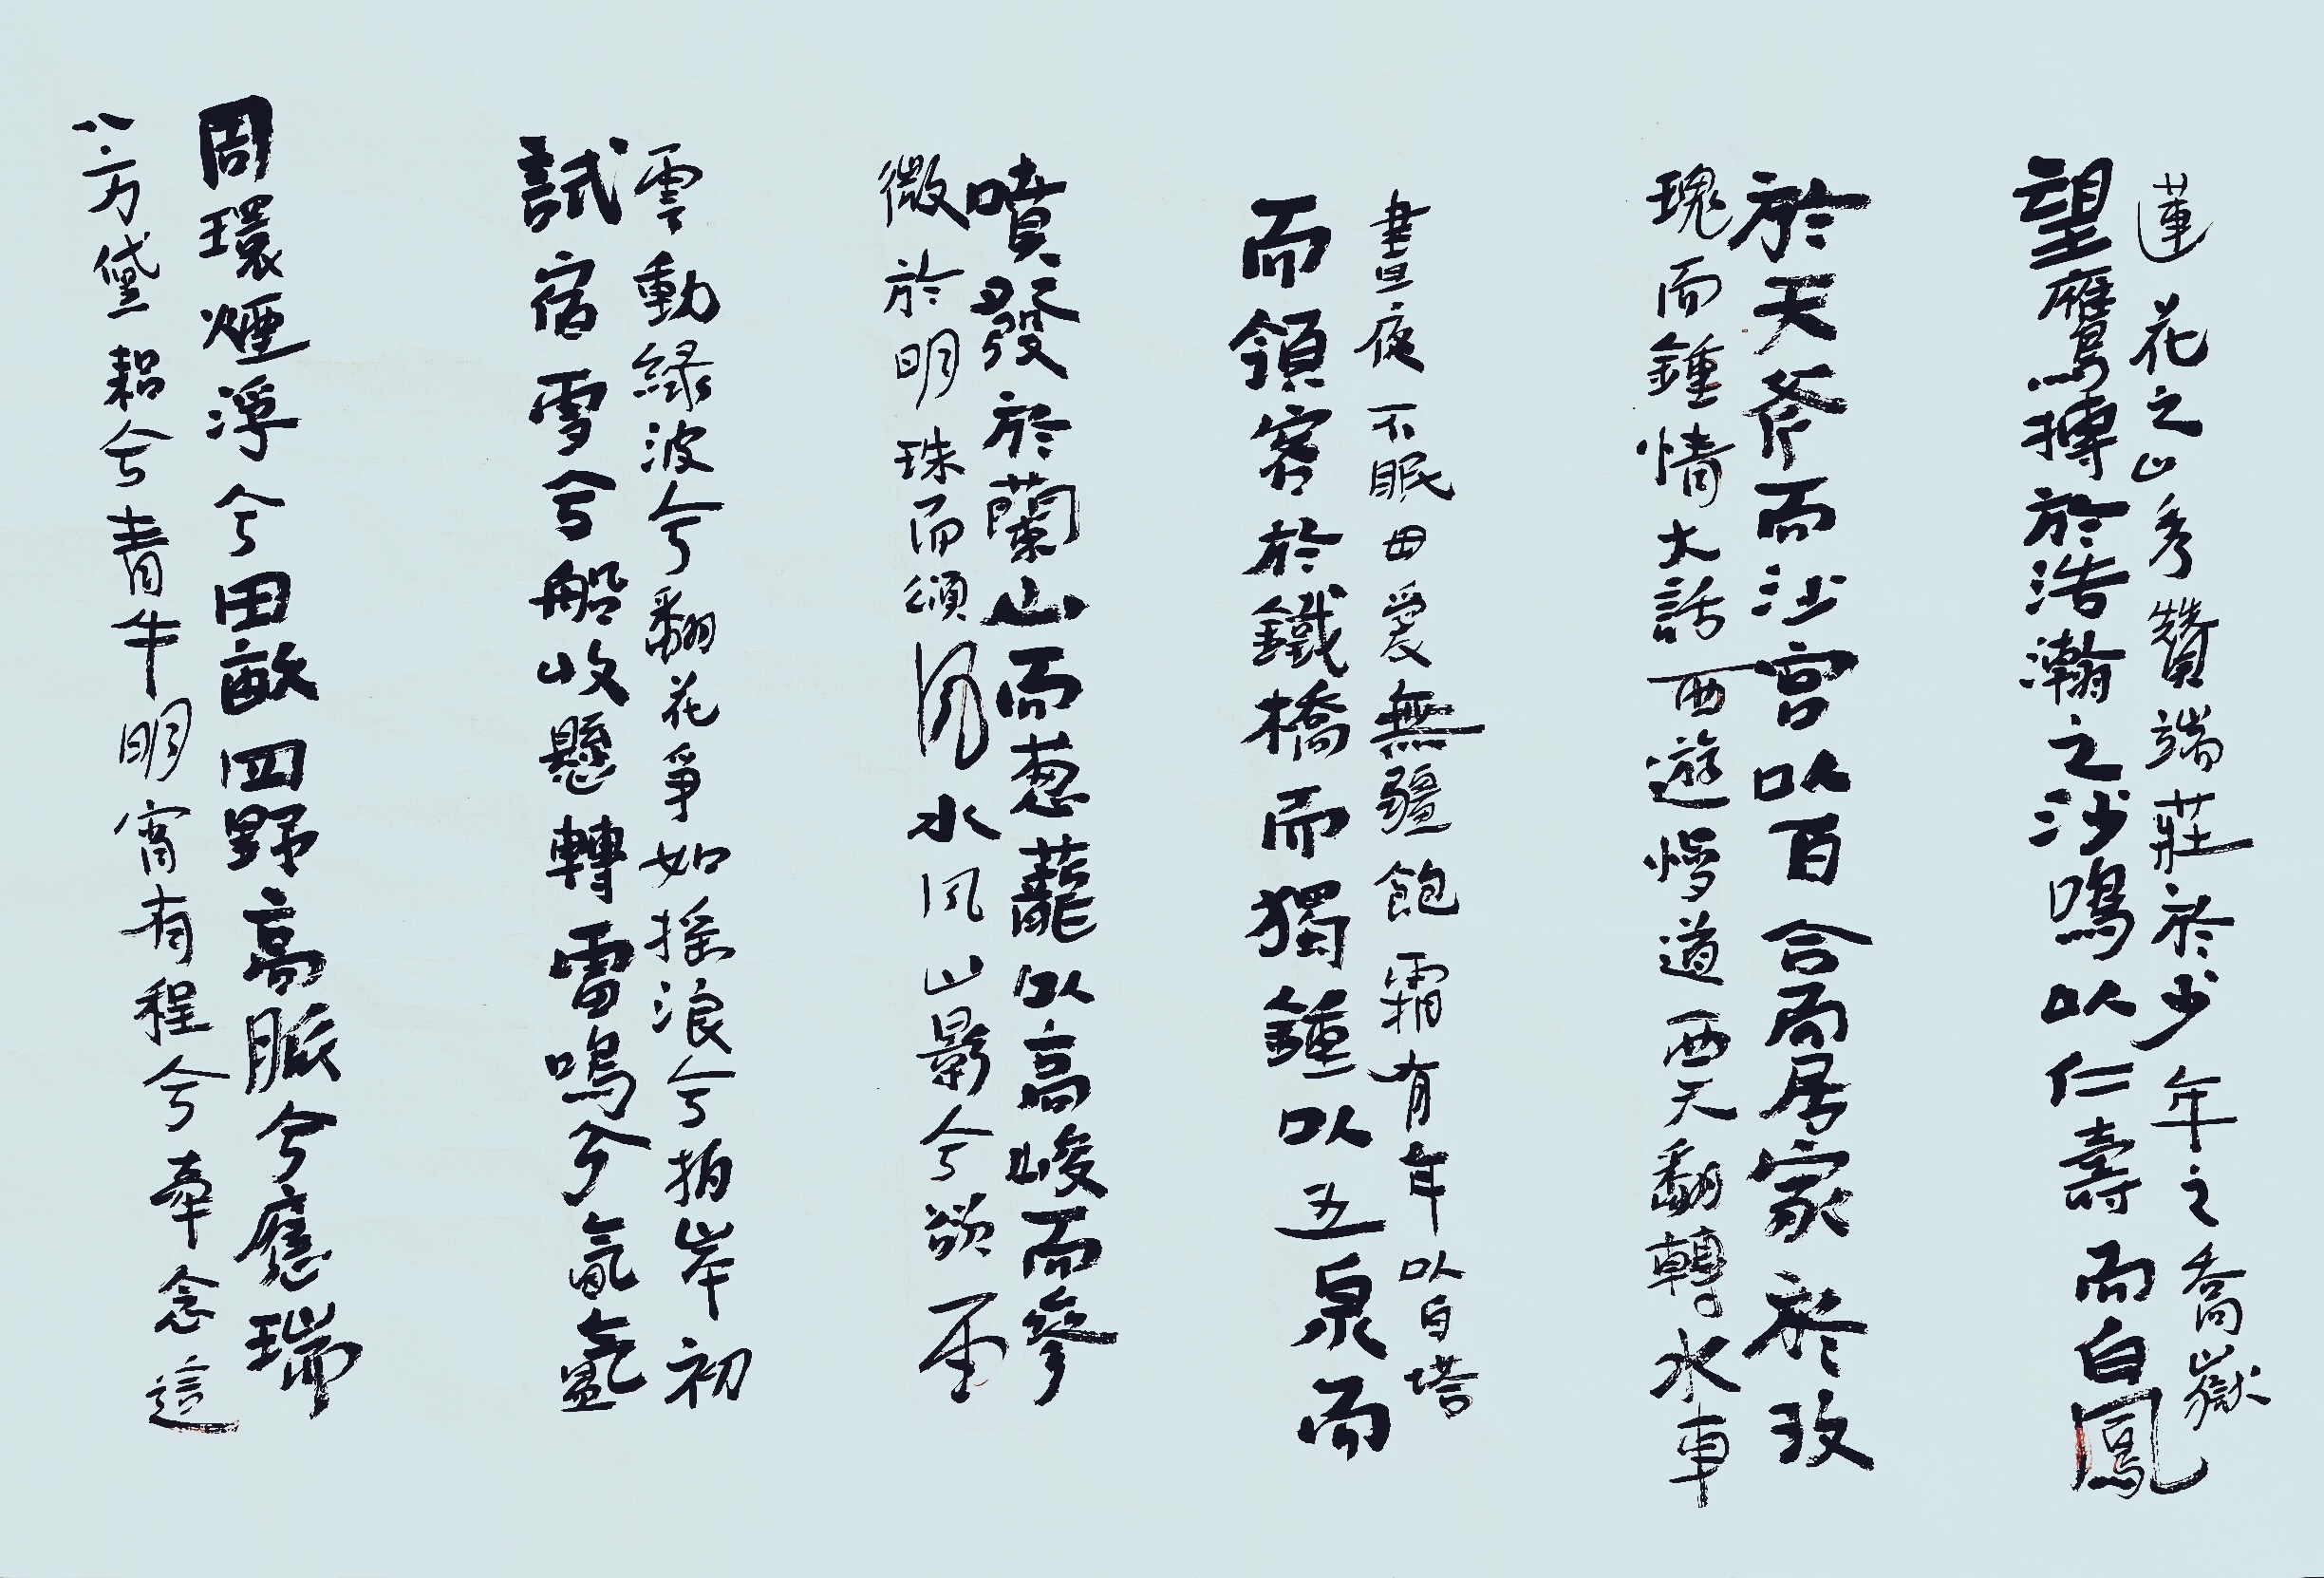 蓮花之山秀贊端莊於少年之喬嶽
望鷹搏於浩瀚之沙鳴以仁壽而白鳳
於天斧而沙宮以百合而居家於玫
瑰而鍾情大話西遊慢道西天翻轉水車
晝夜不眠母愛無疆飽霜有年以白塔
而領客於鐵橋而獨鍾以五泉而
噴發於蘭山而蔥蘢以高峻而參
微於明珠而頌風水風山影兮欲
雲動綠波兮翻花爭如搖浪兮拍岸初
試宿雪兮船收懸轉雷鳴兮氤氳
周環煙浮兮田畝四野高脈兮應瑞
八方黛耜兮青牛明宵有程兮牽念這